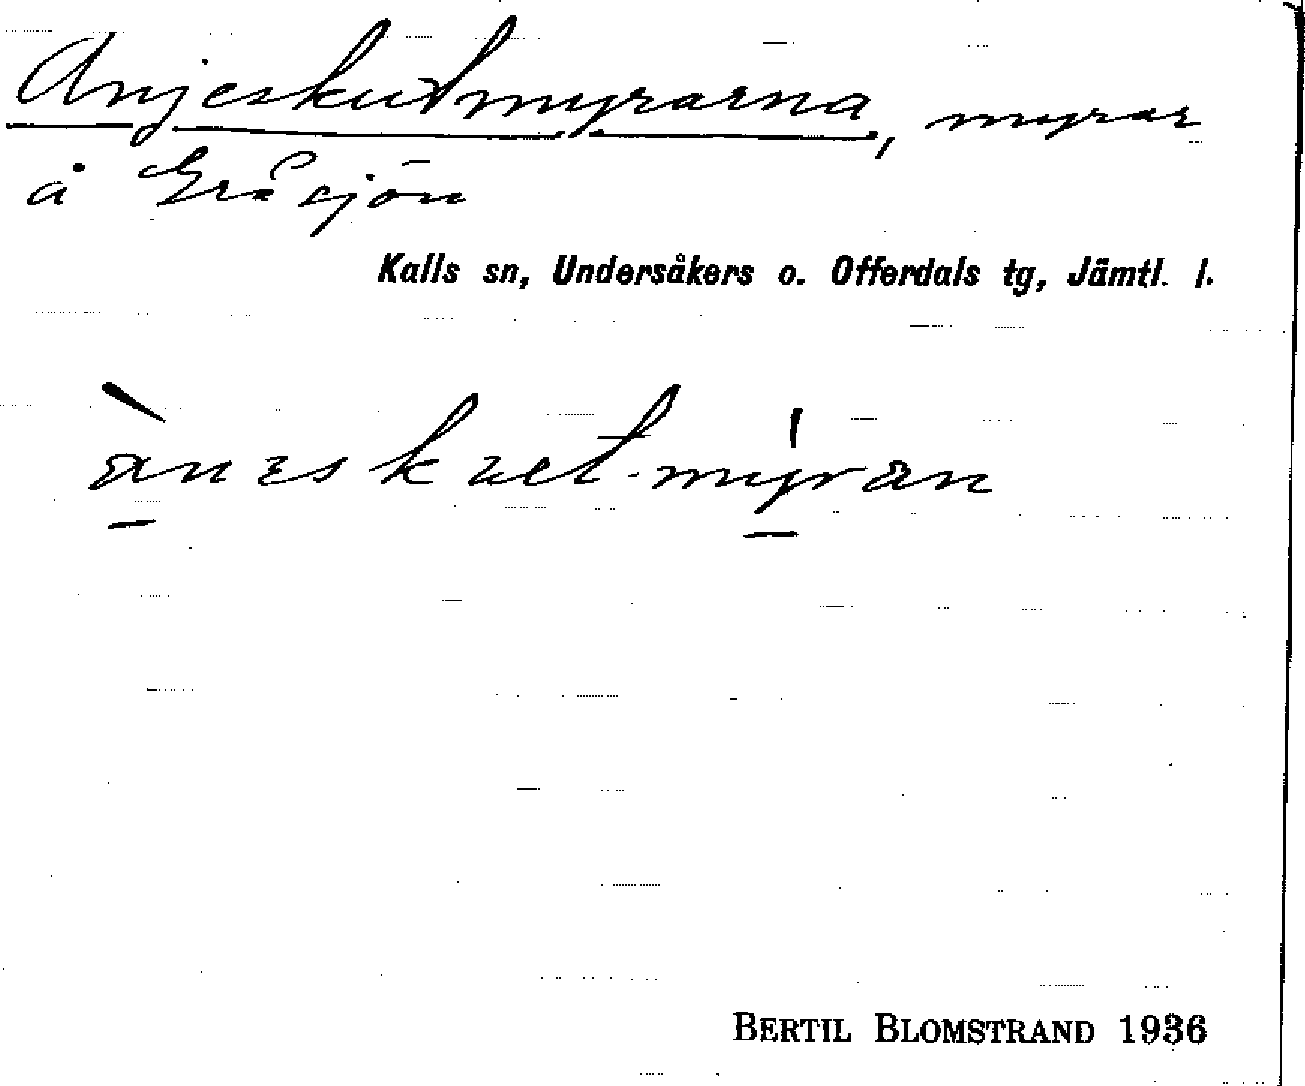 Anjeskutmyrarna, myrar
å Gråsjön
Kalls sn, Undersåkers o. Offerdals tg, Jämtl. l.
BERTIL BLOMSTRAND 1936